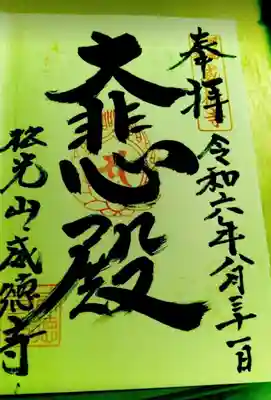 奉拝
令和六年八月三十一日
大悲殿
松光山威徳寺